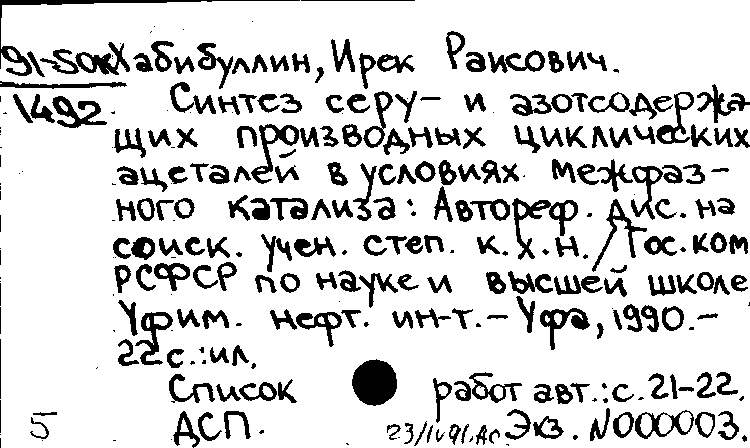 91-50к Хабибуллин, Ирек Раисович.
1492 Синтез серу- и азотсодержа-
щих производных циклических
ацеталей в условиях межфаз-
ного катализа: Автореф. дис. на
соиск. учен. степ. к.х.н. / Гос. ком
РСФСР по науке и высшей школе
Уфим. нефт. ин-т. - Уфа, 1990. -
22 с.: ил.
Список работ авт.: с. 21-22.
5 ДСП. 23/IV91. Ас. Экз. N000003.